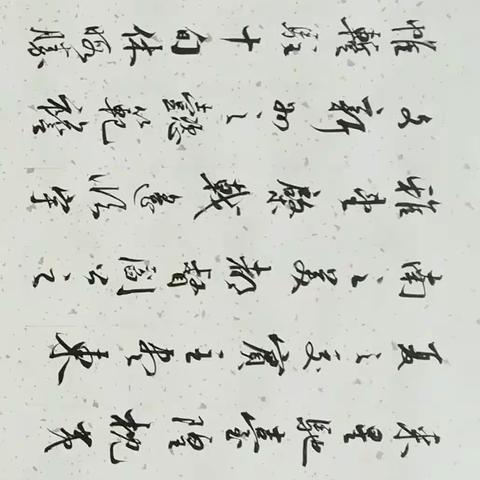 采星馳臺隍枕夷
夏之交賓主盡東
南之美都督閻公之
雅望棨戟遙臨宇
文新州之懿範襜
帷暫駐十旬休暇勝